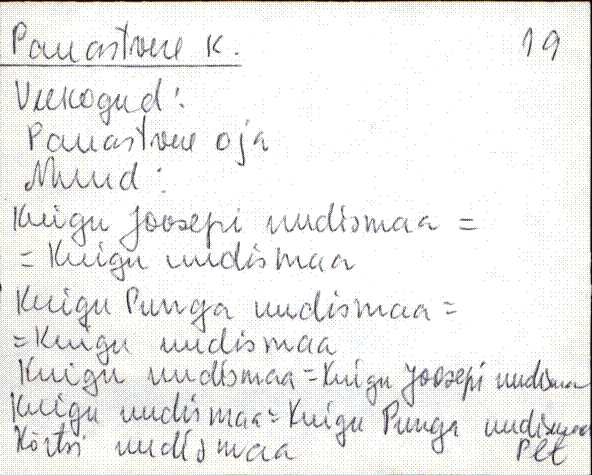 Pauastvere k. 19
Veekogud:
Pauastvere oja
Muud:
Kuigu Joosepi uudismaa =
= Kuigu uudismaa
Kuigu Punga uudismaa =
= Kuigu uudismaa
Kuigu uudismaa = Kuigu Joosepi uudismaa
Kuigu uudismaa = Kuigu Punga uudismaa
Kõrtsi uudismaa Plt